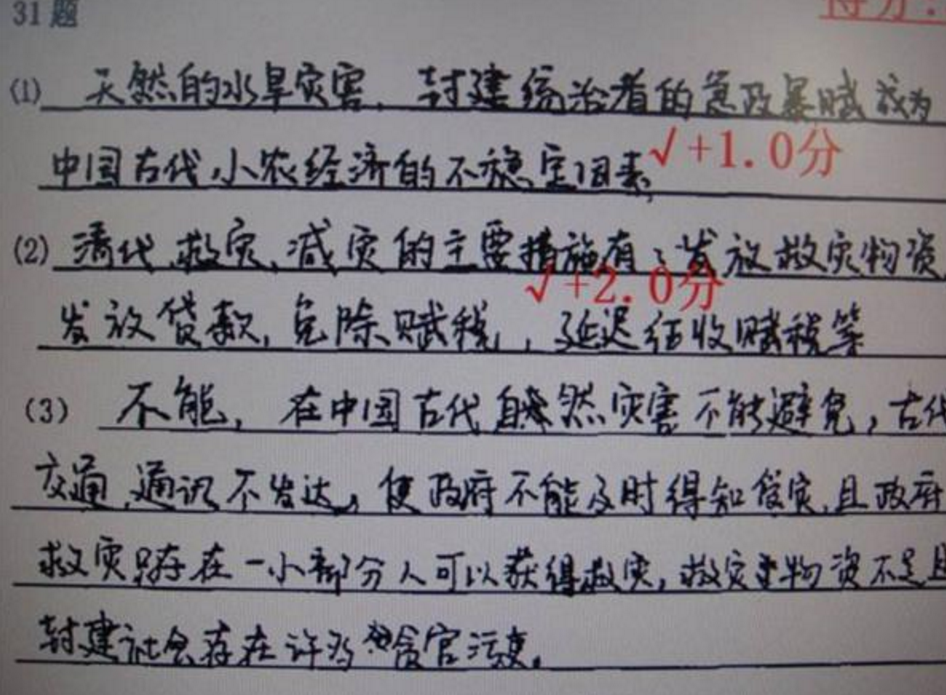 31题
得分:
(1) 天然的水旱灾害,封建统治者的急政暴赋成为
中国古代小农经济的不稳定因素,
√+1.0分
(2) 清代救灾、减灾的主要措施有:发放救灾物资
√+2.0分
发放贷款,免除赋税,延迟征收赋税等
(3) 不能,在中国古代自然灾害不能避免,古代
交通、通讯不发达,使政府不能及时得知灾,且政府
救灾只存在一小部分人可以获得救灾,救灾物资不足且
封建社会存在许多贪官污吏。